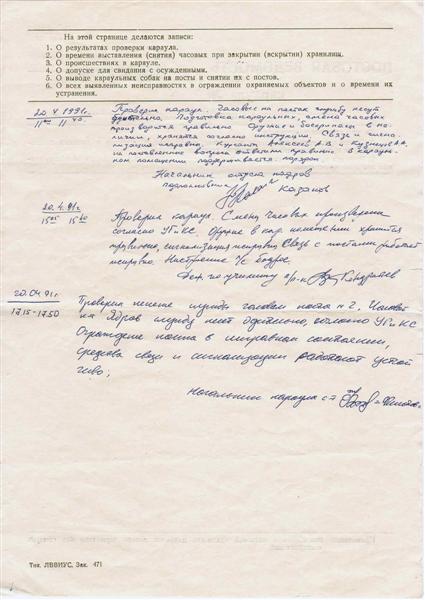 На этой странице делаются записи:
1. О результатах проверки караула.
2. О времени выставления (снятия) часовых при закрытии (вскрытии) хранилищ.
3. О происшествиях в карауле.
4. О допуске для свидания с осужденными.
5. О выводе караульных собак на посты и снятии их с постов.
6. О всех выявленных неисправностях в ограждении охраняемых объектов и о времени их
устранения.
20.4 1991г. Проверил караул. Часовые на постах службу несут
бдительно. Подготовка караульных, смена часовых
производится правильно. Оружие и боеприпасы в на-
личии, хранятся согласно инструкции. Связь и сигна-
лизация исправны. Курсанты Алексеев А.В. и Кузнецов А.А.
на поставленные вопросы ответили правильно. В карауль-
ном помещении поддерживается порядок
Начальник отдела кадров
подполковник Казаков
20.4.91г.
Проверил караул. Смена часовых произведена
согласно УГиКС. Оружие в кар. помещении хранится
правильно, сигнализация исправна. Связь с постами работает
исправно. Настроение л/с бодрое.
Деж. по училищу Кондратьев
20.04.91г.
17.15-17.50
Проверил несение службы часовым поста № 2. Часовой
службу несет бдительно, согласно УГиКС
Ограждение поста в исправном состоянии,
средства связи и сигнализации работают устой
чиво.
Начальник караула с-т
Тип. ЛВВИУС, Зак. 471